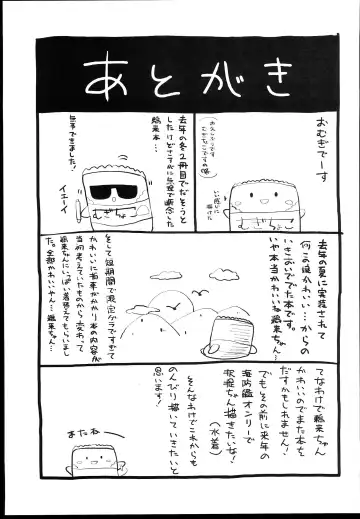 あとがき
おむぎでーす
むぎちょ
去年の冬2冊目でだそうと
したけどさすがに無理で断念した
稲来本…
むぎちょ
イエーイ
去年の夏に実装されて
何この娘かわいい…からの
いきおいででた本です。
いや本当かわいいな稲来ちゃん…
そして短期間で限定グラですぎて
かわいいに拍車がかかり本の内容が
当初考えていたものから変わって
稲来ちゃんにいっぱい着替えてもらいまし
た。全部かわいいやん…稲来ちゃん…
てなわけで稲来ちゃん
かわいいのでまた本を
だすかもしれません!
でもその前に来年の
海防艦オンリーで
択捉ちゃん描きたいな!
(水着)
そんなわけでこれからも
のんびり描いていきたいと
思います!
またね